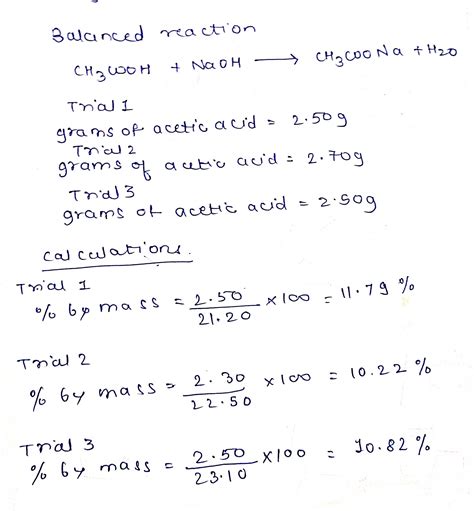 Balanced reaction
CH3COOH + NaOH → CH3COONa + H2O
Trial 1
grams of acetic acid = 2.50g
Trial 2
grams of acetic acid = 2.70g
Trial 3
grams of acetic acid = 2.50g
Calculations.
Trial 1
% by mass = 2.50/21.20 × 100 = 11.79 %
Trial 2
% by mass = 2.30/22.50 × 100 = 10.22 %
Trial 3
% by mass = 2.50/23.10 × 100 = 10.82 %